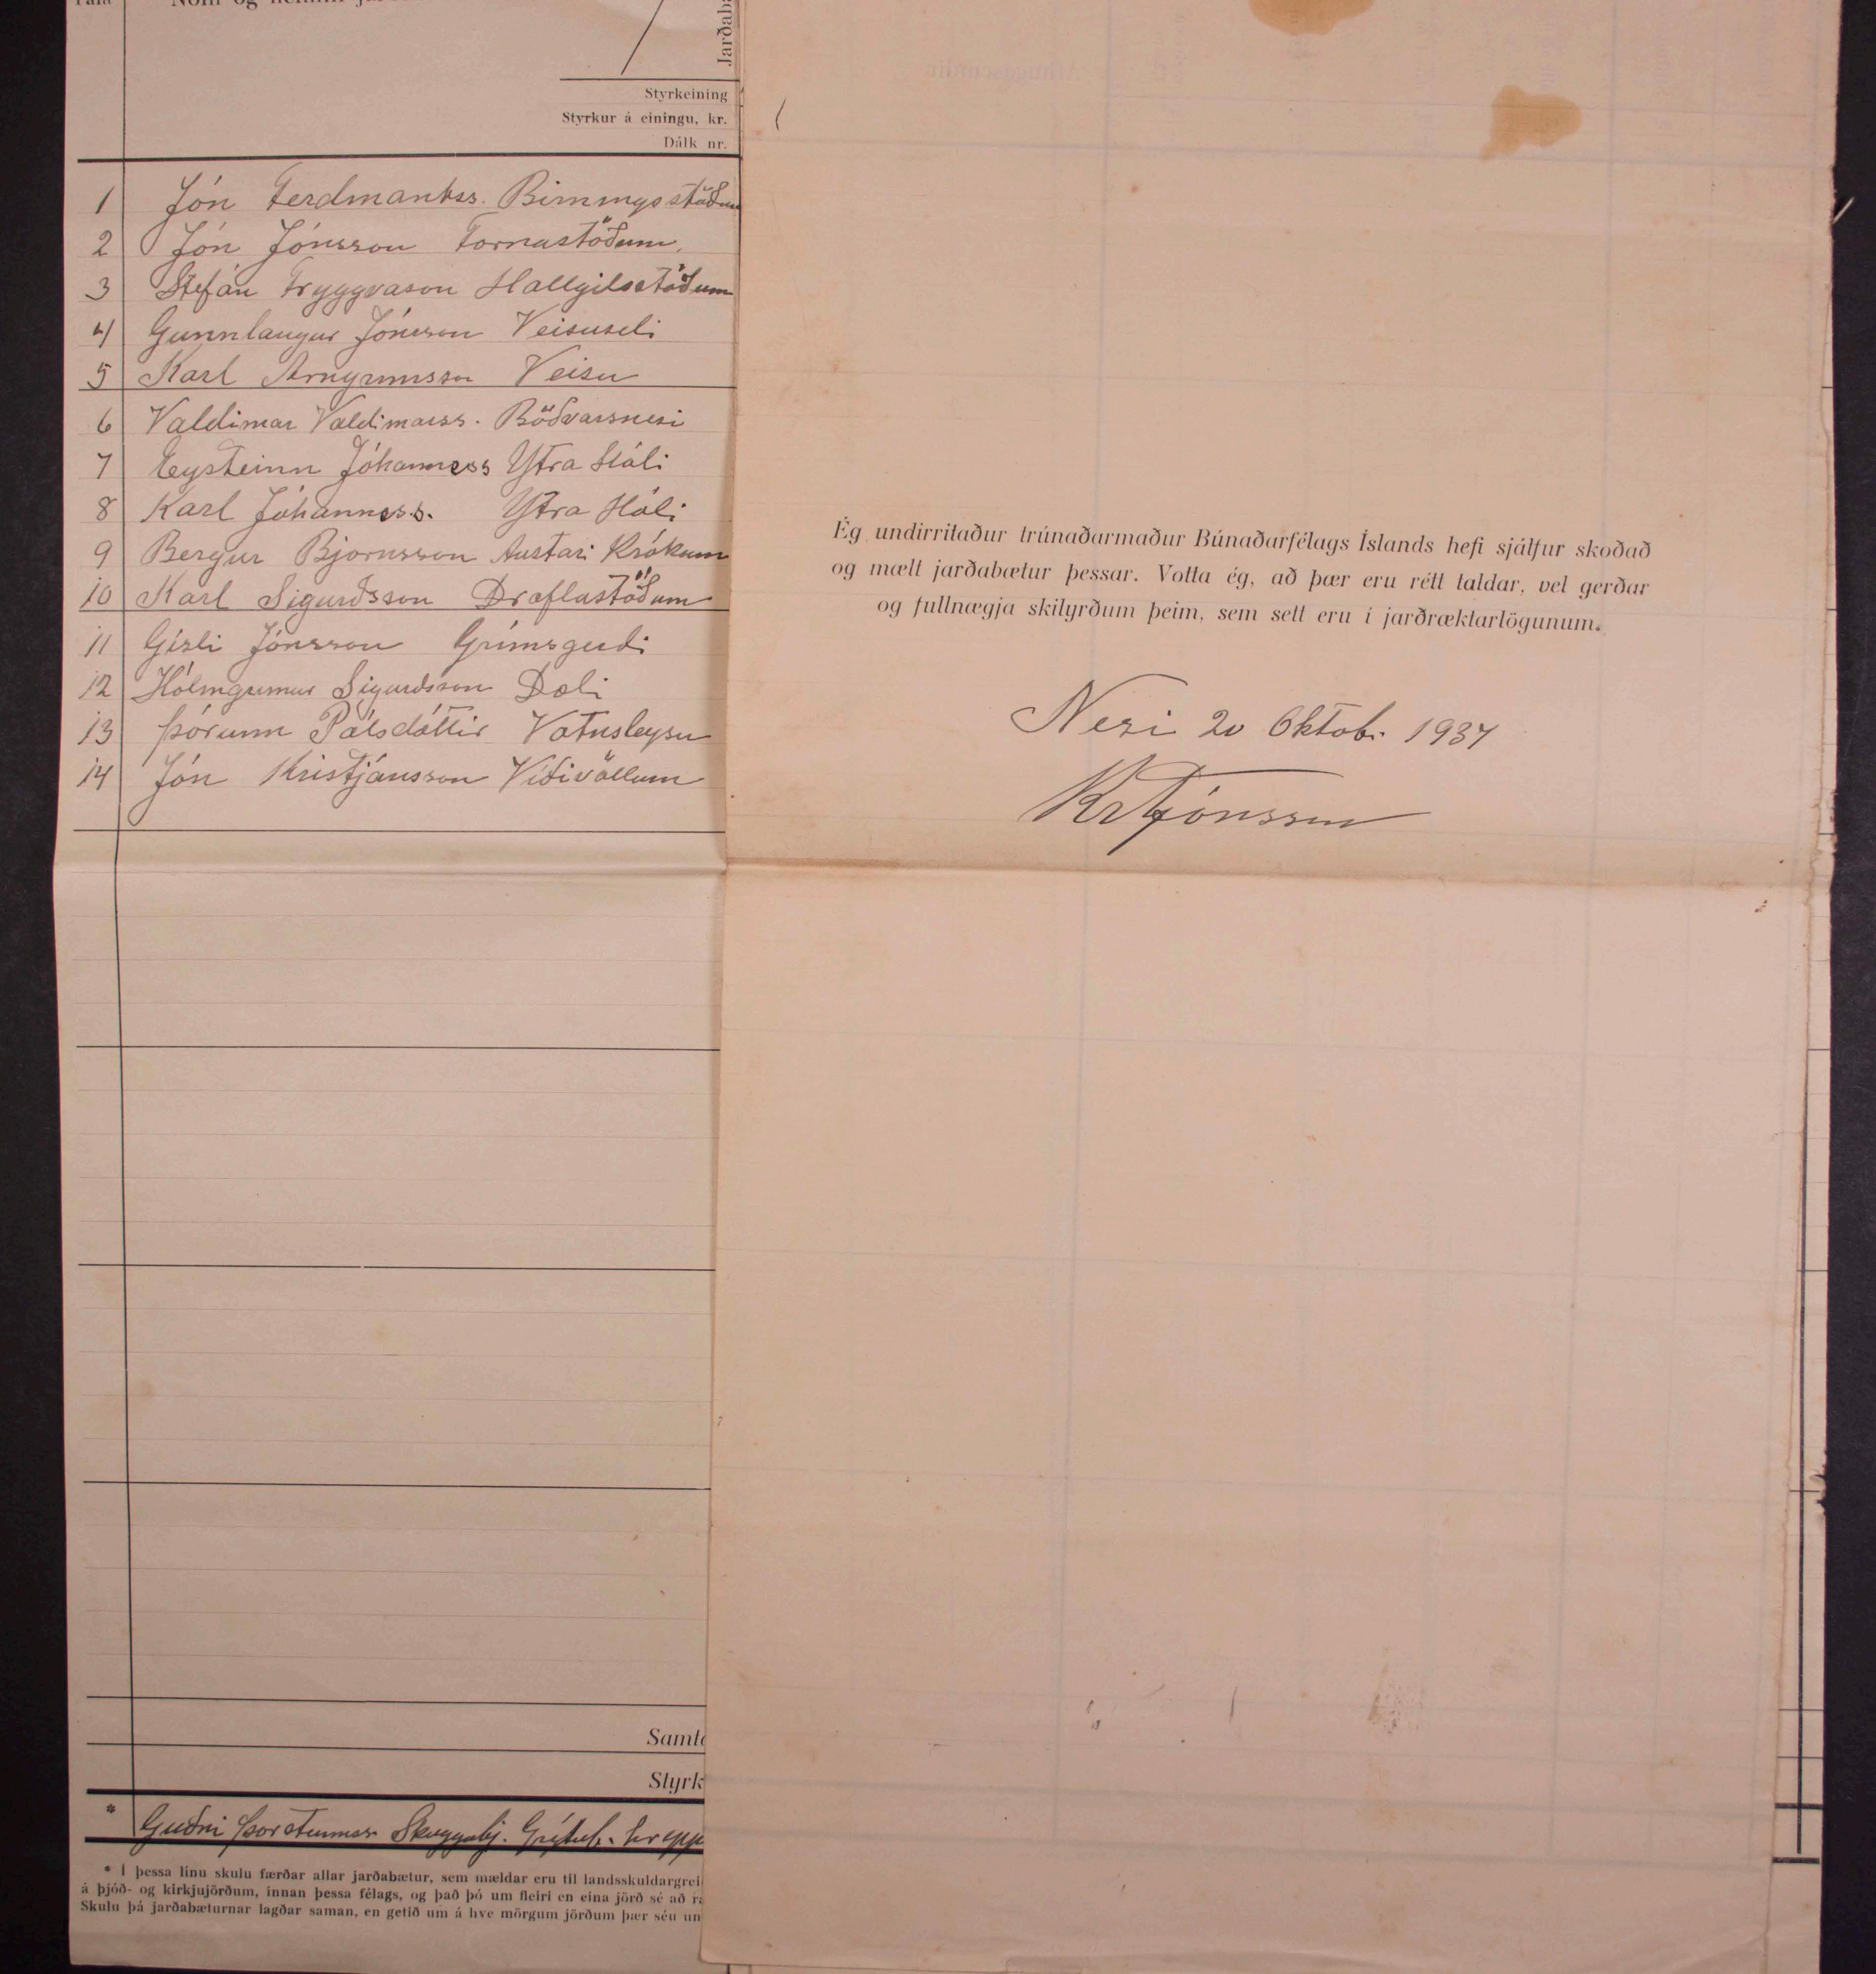 Tala
Nöfn og heimili
Jarðabæ
Styrkeining
Styrkur á einingu, kr.
Dálk nr.
1 Jón Ferdinantss. Birningsstöðum
2 Jón Jónsson Fornastöðum
3 Stefán Tryggvason Hallgilsstöðum
4 Gunnlaugur Jónsson Veisuseli
5 Karl Arngrímsson Veisu
6 Valdimar Valdimarss. Böðvarsnesi
7 Eysteinn Jóhanness Ytra Hóli
8 Karl Jóhanness. Ytra Hóli
9 Bergur Bjornsson Austari Krókum
10 Karl Sigurðsson Draflastöðum
11 Gísli Jónsson Grímsgerdi
12 Hólmgrímur Sigurdsson Dæli
13 Þórunn Pálsdóttir Vatnsleysu
14 Jón Kristjánsson Víðivöllum
Samt
Styrk
* Guðni Þorsteinsson Skuggabj. Grýtub. hrepp
* Í þessa línu skulu færðar allar jarðabætur, sem mældar eru til landsskuldargrei
á þjóð- og kirkjujörðum, innan þessa félags, og það þó um fleiri en eina jörð sé að r
Skulu þá jarðabæturnar lagðar saman, en getið um á hve mörgum jörðum þær séu un
Ég undirritaður trúnaðarmaður Búnaðarfélags Íslands hefi sjálfur skoðað
og mælt jarðabætur þessar. Votta ég, að þær eru rétt taldar, vel gerðar
og fullnægja skilyrðum þeim, sem sett eru í jarðræktarlögunum.
Nesi 20 Oktob. 1937
Kr Jónsson